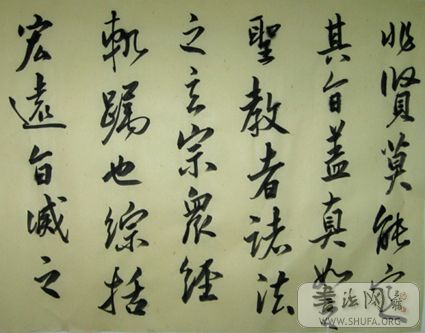 非賢莫能定
其旨蓋真如
聖教者諸法
之玄宗眾經
軌躅也綜括
宏遠旨之
書法网
WWW.SHUFA.ORG